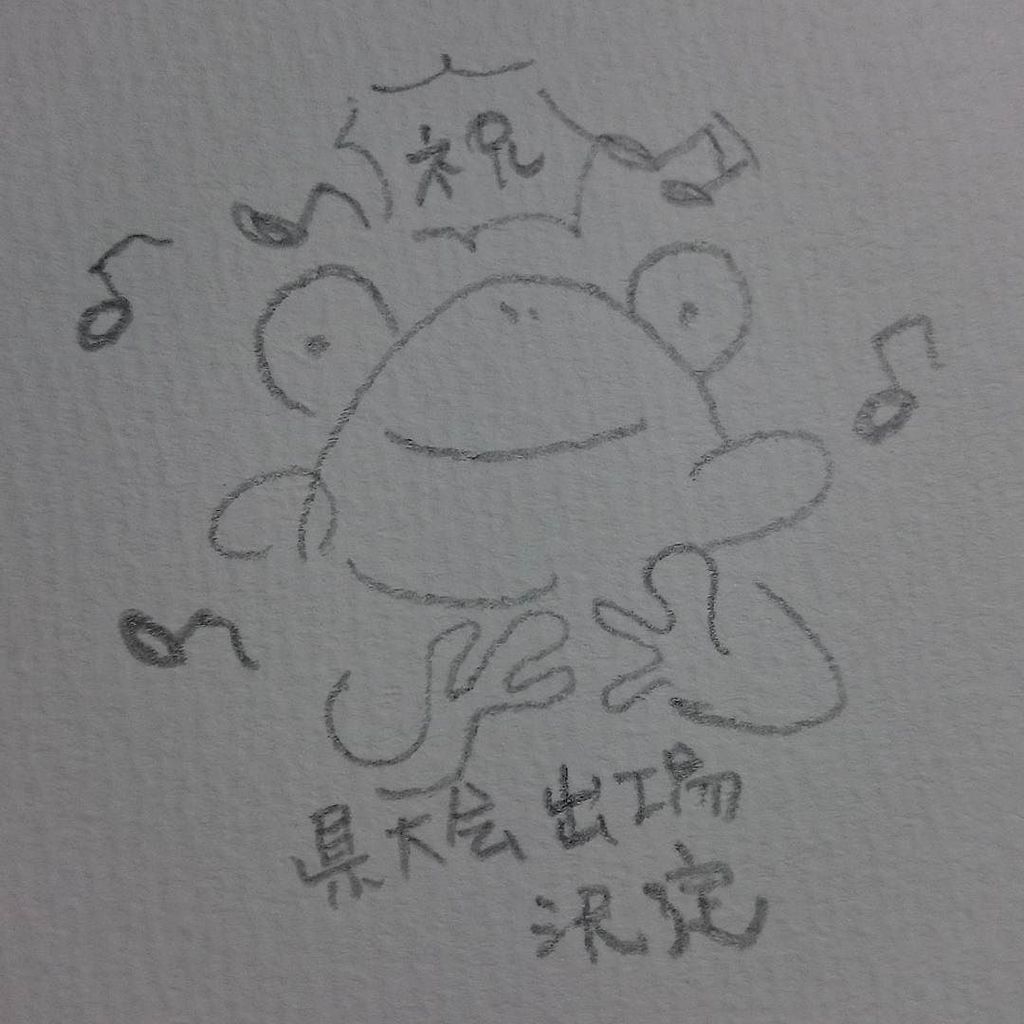 祝
県大会出場
決定